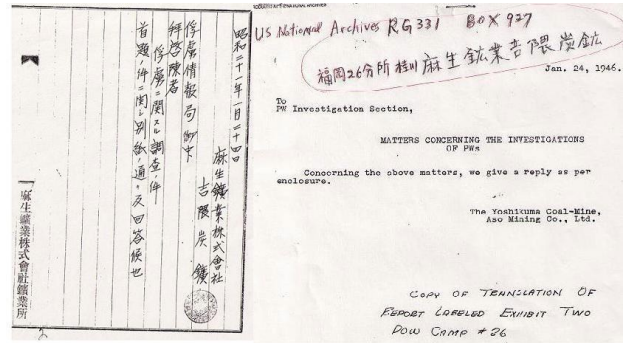 昭和二十一年一月二十四日
麻生鑛業株式會社
吉隈炭鑛
俘虜情報局御中
拝啓陳者
俘虜ニ関スル調査ノ件
首題ノ件ニ関シ別紙ノ通リ及回答候也
麻生鑛業株式會社鑛業所
US National Archives RG 331 BOX 927
福岡26分所 桂川 麻生鉱業吉隈炭鉱
Jan. 24, 1946.
To
PW Investigation Section,
MATTERS CONCERNING THE INVESTIGATIONS
OF PWs
Concerning the above matters, we give a reply as per
enclosure.
The Yoshikuma Coal-Mine,
Aso Mining Co., Ltd.
COPY OF TRANSLATION OF
REPORT LABELED EXHIBIT TWO
POW CAMP # 26